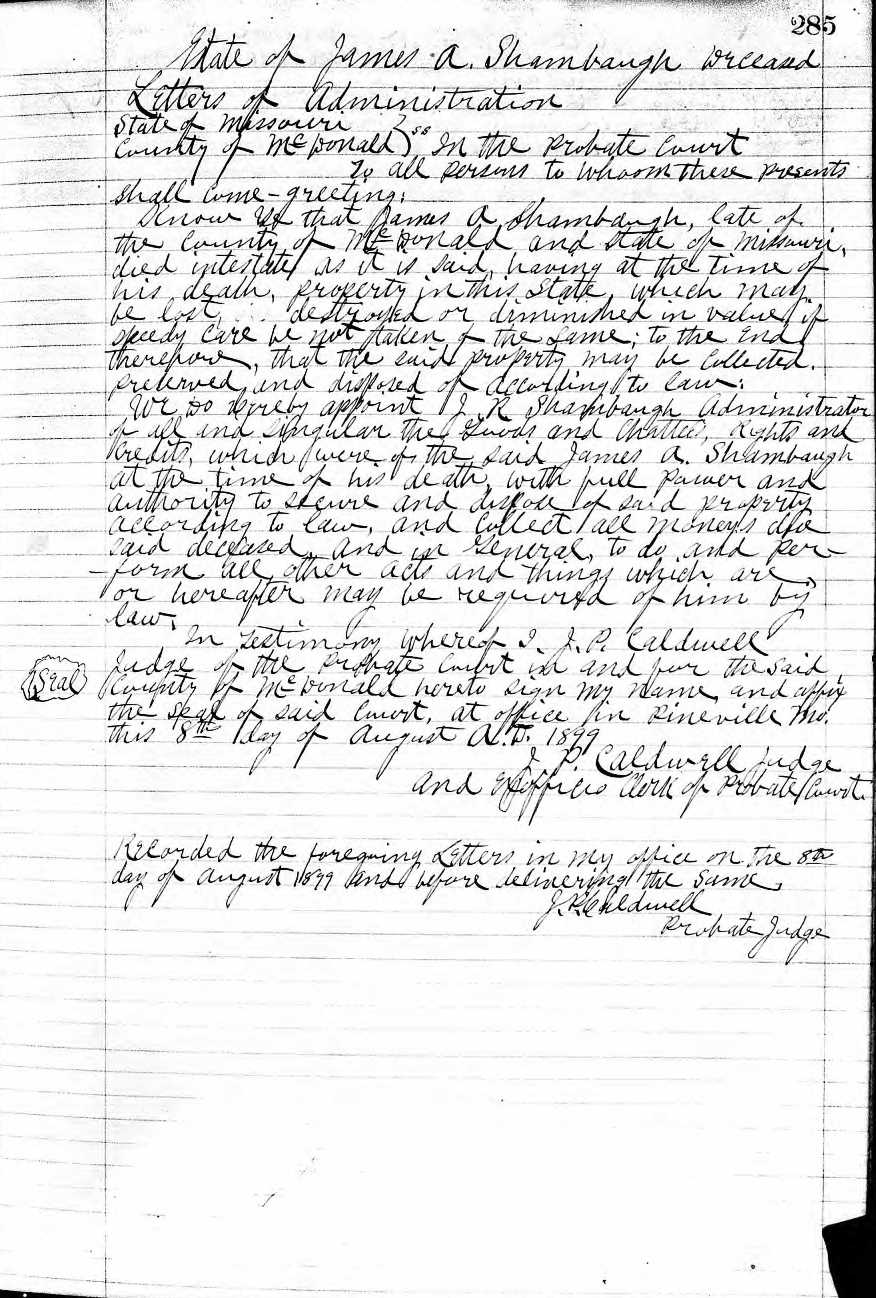 285
Estate of James A. Shambaugh Deceased
Letters of Administration
State of Missouri
County of McDonald } ss In the Probate Court
To all Persons to Whoom these presents
shall come - greeting:
Know Ye that James A Shambaugh, late of
the County of McDonald and State of Missouri,
died intestate as it is said, having at the time of
his death, property in this State, which may
be lost, destroyed or diminished in value, if
speedy care be not taken of the same; to the End
therefore, that the said property may be collected.
preserved and disposed of according to law:
We Do Hereby appoint J. R Shambaugh Administrator
of all and singular the Goods and Chattels, Rights and
Credits, which were of the said James A. Shambaugh
at the time of his death, with full power and
authority to secure and dispose of said property
according to law, and collect all moneys due
said deceased, and in General, to do and per-
form all other acts and things which are
or hereafter may be required of him by
law.
In Testimony whereof I, J. P. Caldwell
Judge of the Probate Court in and for the said
(Seal) County of McDonald hereto sign my name, and affix
the seal of said Court, at office in Pineville Mo.
this 8th day of August A.D. 1899
J. P. Caldwell Judge
and Exofficio Clerk of Probate Court.
Recorded the foregoing Letters in my office on the 8th
day of August 1899 and before delivering the same,
J. P. Caldwell
Probate Judge